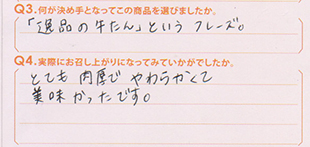 Q3.何が決め手となってこの商品を選びましたか。
「逸品の牛たん」という フレーズ。
Q4.実際にお召し上がりになってみていかがでしたか。
とても 肉厚で やわらかくて
美味 かったです。